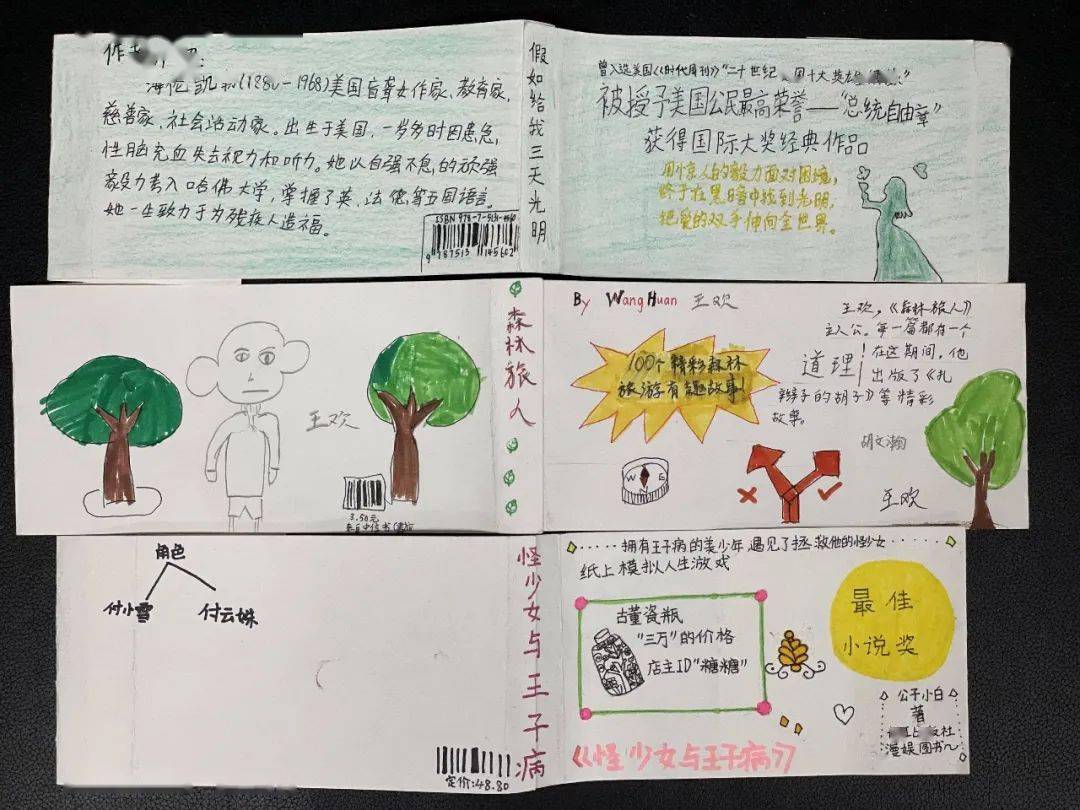 慈善家、社会活动家。出生于美国,一岁多时因患急
性脑充血失去视力和听力。她以自强不息的顽强
毅力考入哈佛大学,掌握了英、法德等五国语言。
她一生致力于为残疾人造福。
9 787513 145602
假如给我三天光明
曾入选美国《时代周刊》“二十世纪
被授予美国公民最高荣誉——“总统自由章”
获得国际大奖经典作品
用惊人的毅力面对困境,
终于在黑暗中找到光明,
把爱的双手伸向全世界。
王欢
3.50元
森林旅人
By Wang Huan 王欢
100个精彩森林
旅游有趣故事!
W E
王欢,《森林旅人》
主人公。每一篇都有一个
道理!在这期间,他
出版了《扎
辫子的胡子》等精彩
故事。
胡文瀚
王欢
角色
付小雪 付云姝
定价:48.80
怪少女与王子病
······拥有王子病的美少年遇见了拯救他的怪少女
纸上模拟人生游戏
古董瓷瓶
“三万”的价格
店主ID“糖糖”
最佳
小说奖
公子小白
著
社
漫娱图书
《怪少女与王子病》